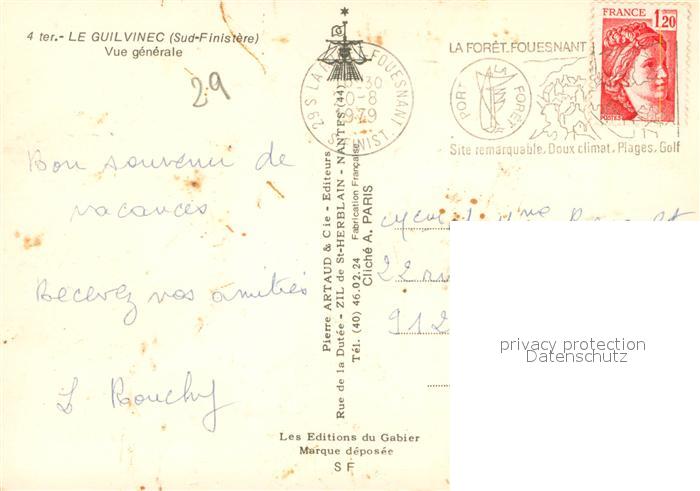 4 ter.- LE GUILVINEC (Sud-Finistère)
Vue générale
29
Bon souvenir de
vacances
Recevez nos amitiés
Pierre ARTAUD & Cie - Editeurs
Rue de la Dutée - ZIL de St-HERBLAIN - NANTES (44)
Tél. (40) 46.02.24 Fabrication Française
Cliché A. PARIS
Les Editions du Gabier
Marque déposée
S F
29 S LA FOUESNANT
10-8
1979
FINIST.
LA FORÊT. FOUESNANT
PORT LA FORET
Site remarquable. Doux climat. Plages. Golf
FRANCE
1,20
POSTES
22 rue
912
privacy protection
Datenschutz